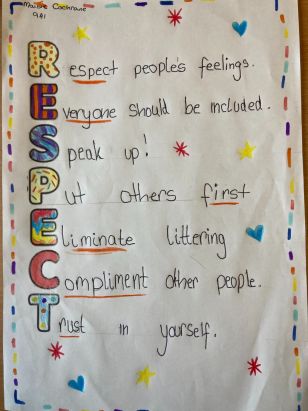 Maisie Cochrane
9A1
Respect people's feelings.
Everyone should be included.
Speak up!
Put others first
Eliminate littering
Compliment other people.
Trust in yourself.